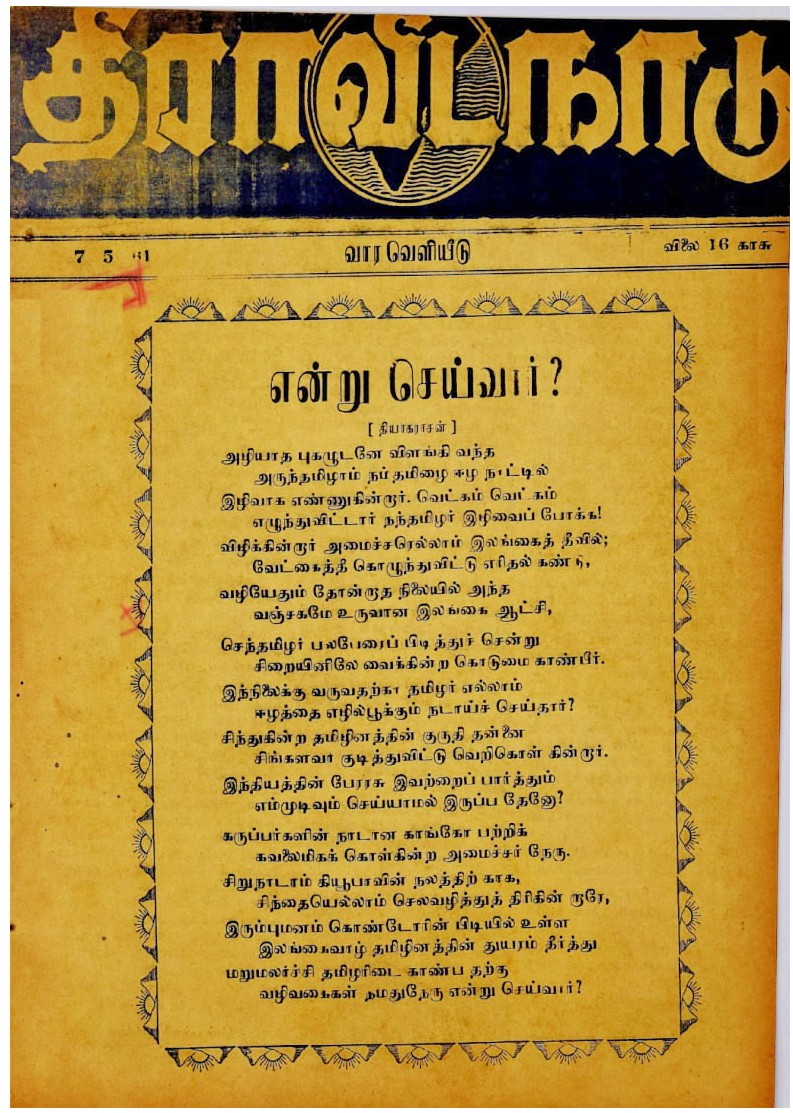 திராவிடநாடு
7 5 61
வார வெளியீடு
விலை 16 காசு
என்று செய்வார்?
[ தியாகராசன் ]
அழியாத புகழுடனே விளங்கி வந்த
அருந்தமிழாம் நம் தமிழை ஈழ நாட்டில்
இழிவாக எண்ணுகின்றார். வெட்கம் வெட்கம்
எழுந்துவிட்டார் நந்தமிழர் இழிவைப் போக்க!
விழிக்கின்றார் அமைச்சரெல்லாம் இலங்கைத் தீவில்;
வேட்கைத்தீ கொழுந்துவிட்டு எரிதல் கண்டு,
வழியேதும் தோன்றாத நிலையில் அந்த
வஞ்சகமே உருவான இலங்கை ஆட்சி,
செந்தமிழர் பலபேரைப் பிடித்துச் சென்று
சிறையினிலே வைக்கின்ற கொடுமை காண்பீர்.
இந்நிலைக்கு வருவதற்கா தமிழர் எல்லாம்
ஈழத்தை எழில்பூக்கும் நடாய்ச் செய்தார்?
சிந்துகின்ற தமிழினத்தின் குருதி தன்னை
சிங்களவர் குடித்துவிட்டு வெறிகொள் கின்றார்.
இந்தியத்தின் பேரரசு இவற்றைப் பார்த்தும்
எம்முடிவும் செய்யாமல் இருப்ப தேனோ?
கருப்பர்களின் நாடான காங்கோ பற்றிக்
கவலைமிகக் கொள்கின்ற அமைச்சர் நேரு.
சிறுநாடாம் கியூபாவின் நலத்திற் காக,
சிந்தையெல்லாம் செலவழித்துத் திரிகின் றாரே,
இரும்புமனம் கொண்டோரின் பிடியில் உள்ள
இலங்கைவாழ் தமிழினத்தின் துயரம் தீர்த்து
மறுமலர்ச்சி தமிழரிடை காண்ப தற்கு
வழிவகைகள் நமதுநேரு என்று செய்வார்?